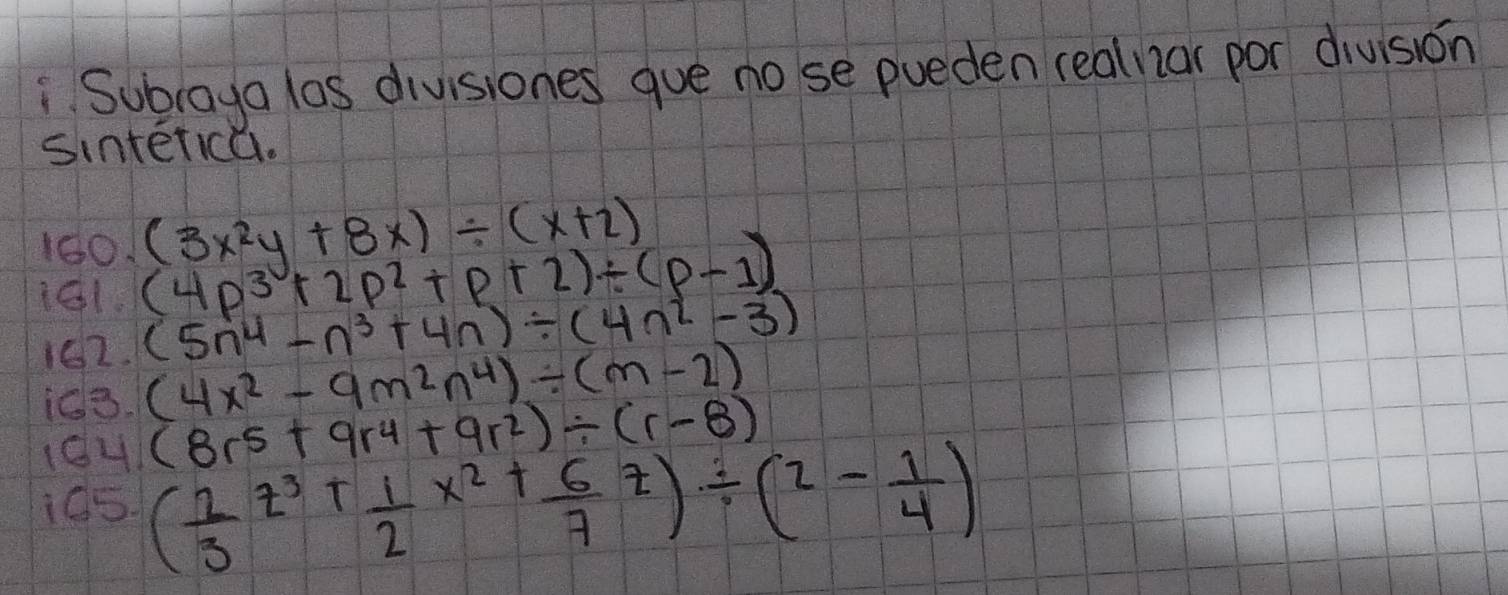 i. Subraya las divisiones que no se pueden realizar por división
sintética.
160. (3x²y + 8x) ÷ (x+2)
161. (4p³ + 2p² + p + 2) ÷ (p - 1)
162. (5n⁴ - n³ + 4n) ÷ (4n² - 3)
163. (4x² - 9m²n⁴) ÷ (m - 2)
164 (8r⁵ + 9r⁴ + 9r²) ÷ (r - 8)
165. (2/3 z³ + 1/2 x² + 6/7 z) ÷ (2 - 1/4)